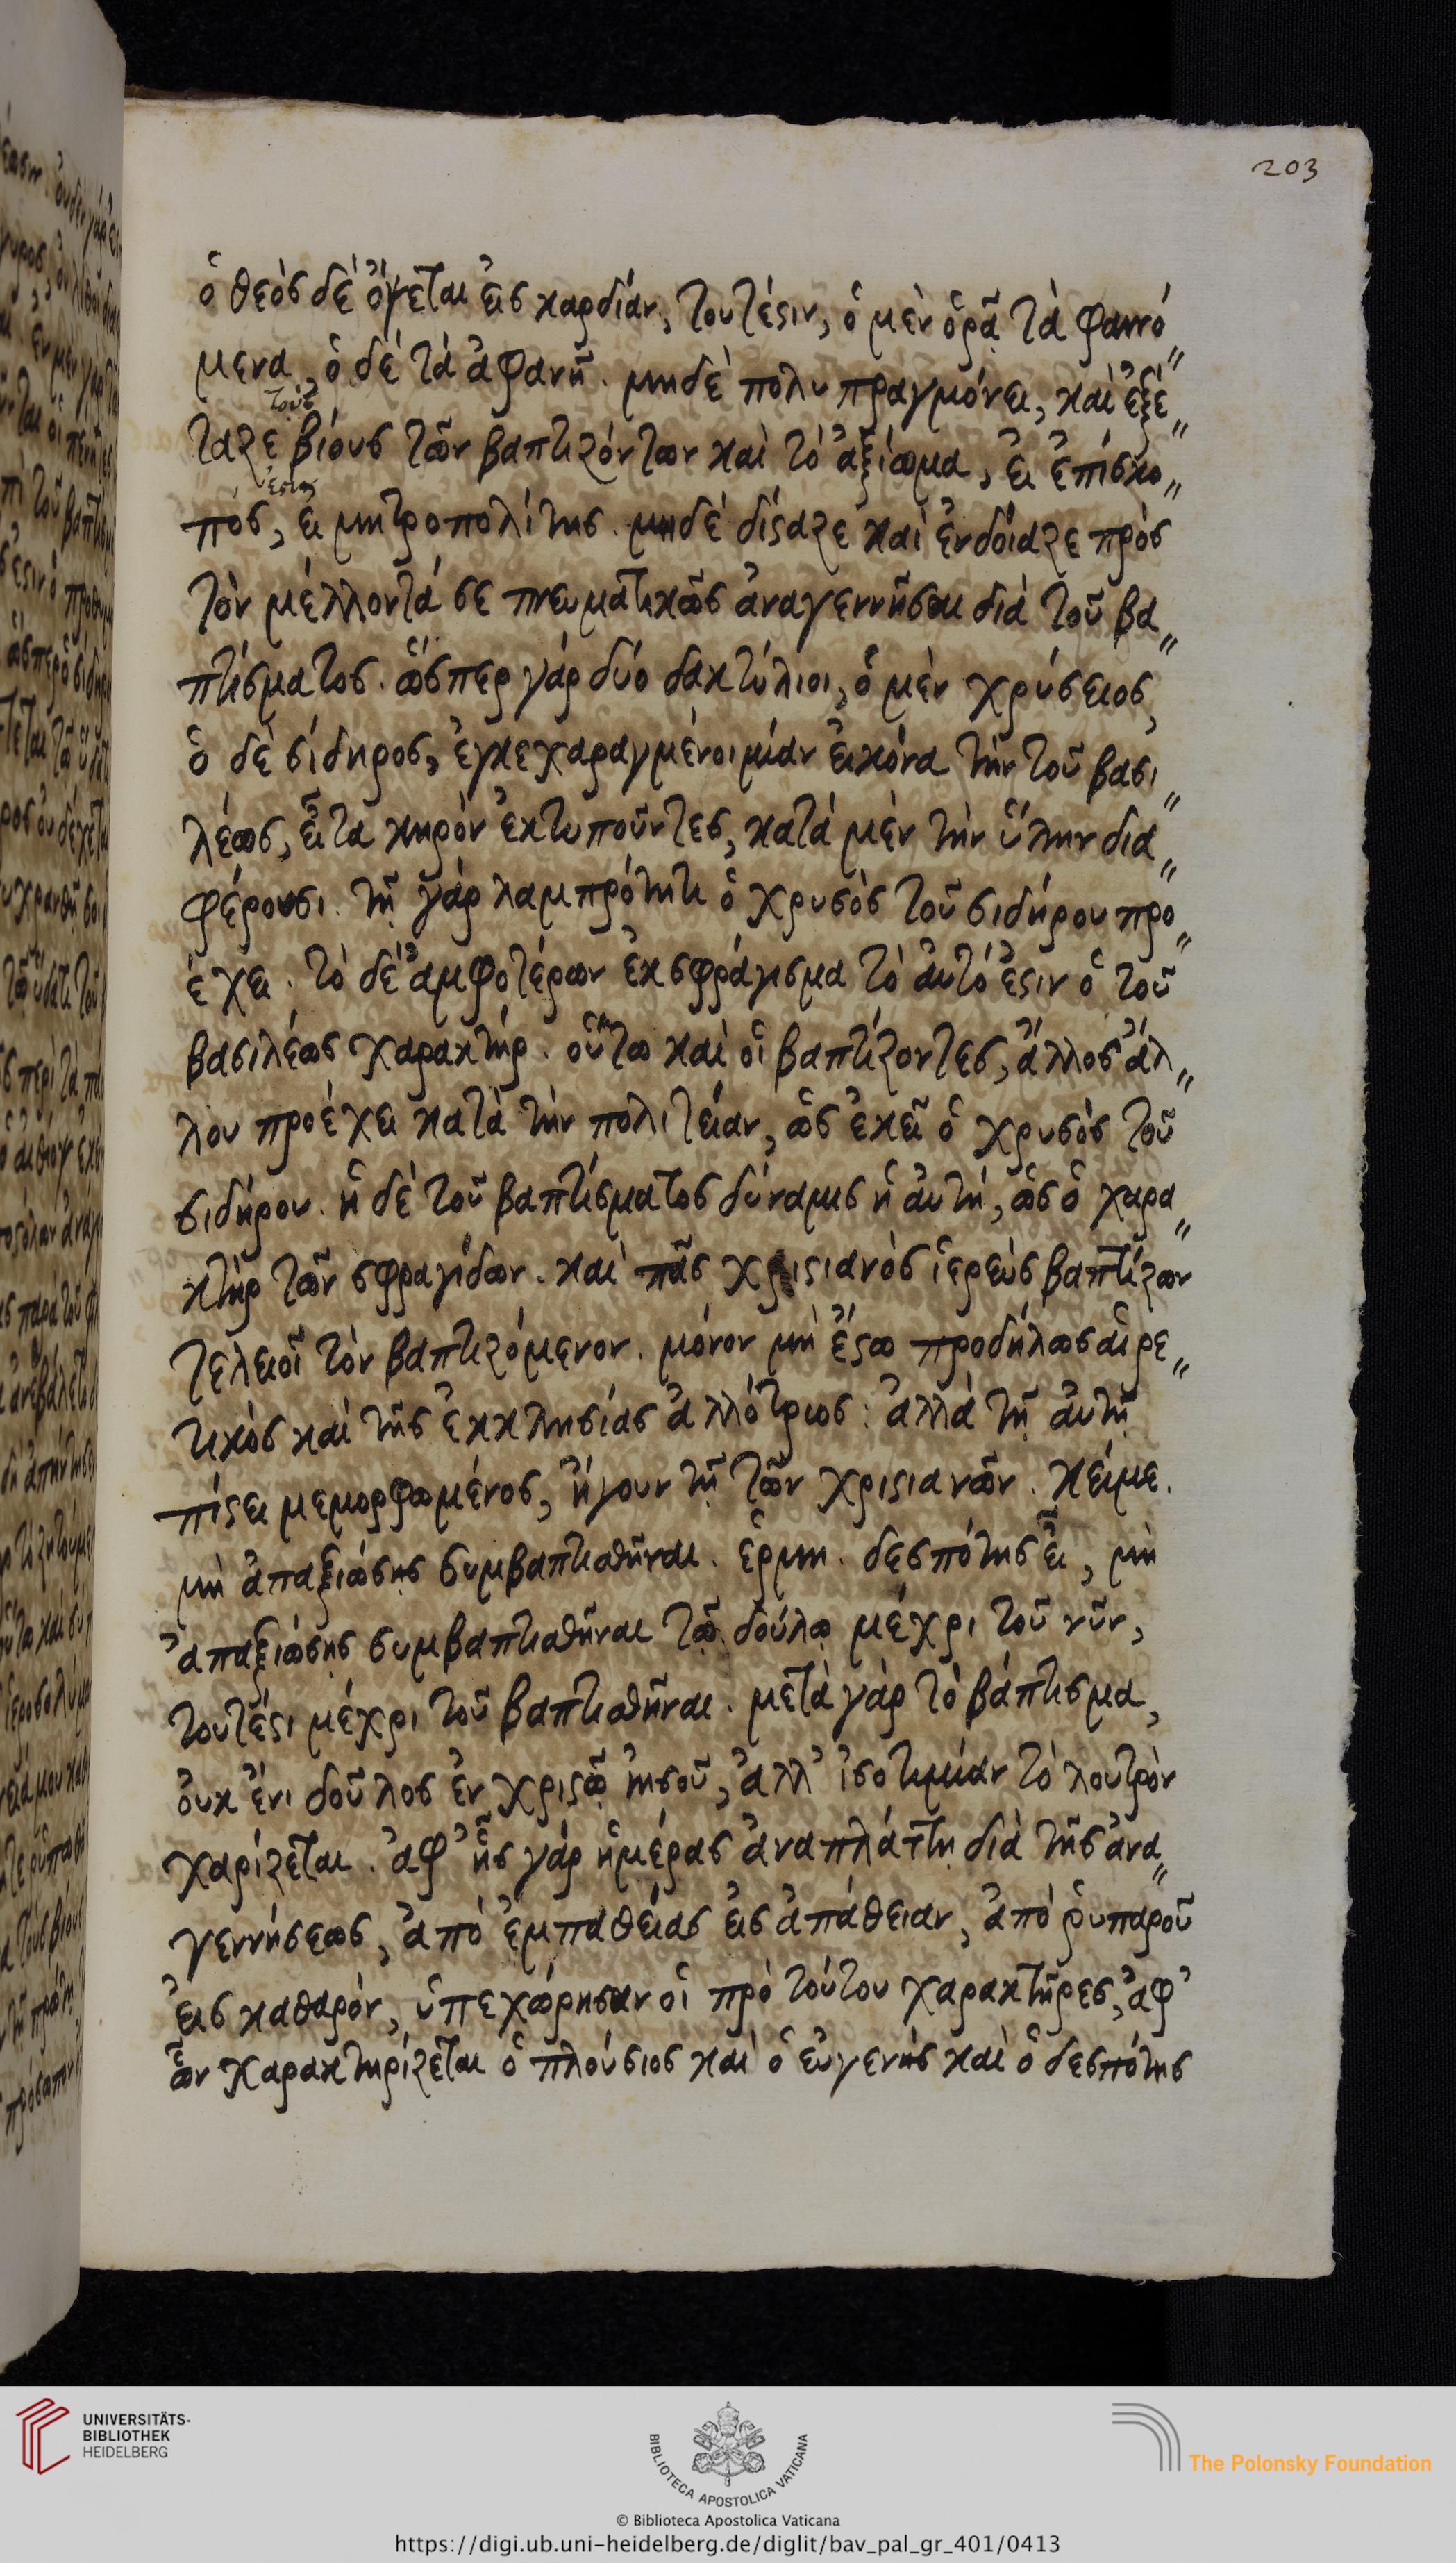 203
ὁ θεὸς δὲ ὄψεται εἰς καρδίαν, τουτέστιν, ὁ μὲν ὁρᾷ τὰ φαινό„
μενα, ὁ δὲ τὰ ἀφανῆ. μηδὲ πολυπραγμόνει, καὶ ἐξέ„
τοὺς
ταζε βίους τῶν βαπτιζόντων καὶ τὸ ἀξίωμα, εἰ ἐπίσκο„
ἐστιν
πός, εἰ μητροπολίτης. μηδὲ δίσταζε καὶ ἐνδοίαζε πρὸς
τὸν μέλλοντά σε πνευματικῶς ἀναγεννῆσαι διὰ τοῦ βα„
πτίσματος. ὥσπερ γὰρ δύο δακτύλιοι, ὁ μὲν χρύσειος,
ὁ δὲ σίδηρος, ἐγκεχαραγμένοι μίαν εἰκόνα τὴν τοῦ βασι„
λέως, εἶτα κηρὸν ἐκτυποῦντες, κατὰ μὲν τὴν ὕλην δια„
φέρουσι. τῇ γὰρ λαμπρότητι ὁ χρυσὸς τοῦ σιδήρου προ„
έχει. τὸ δὲ ἀμφοτέρων ἐκσφράγισμα τὸ αὐτό ἐστιν ὁ τοῦ
βασιλέως χαρακτήρ. οὕτω καὶ οἱ βαπτίζοντες, ἄλλος ἄλ„
λου προέχει κατὰ τὴν πολιτείαν, ὡς ἐκεῖ ὁ χρυσὸς τοῦ
σιδήρου. ἡ δὲ τοῦ βαπτίσματος δύναμις ἡ αὐτή, ὡς ὁ χαρα„
κτὴρ τῶν σφραγίδων. καὶ πᾶς χριστιανὸς ἱερεὺς βαπτίζων
τελειοῖ τὸν βαπτιζόμενον. μόνον μὴ ἔστω προδήλως αἱρε„
τικὸς καὶ τῆς ἐκκλησίας ἀλλότριος: ἀλλὰ τῇ αὐτῇ
πίστει μεμορφωμένος, ἤγουν τῇ τῶν χριστιανῶν. κείμε.
μὴ ἀπαξιώσῃς συμβαπτισθῆναι. ἑρμη. δεσπότης εἶ, μὴ
ἀπαξιώσῃς συμβαπτισθῆναι τῷ δούλῳ μέχρι τοῦ νῦν,
τουτέστι μέχρι τοῦ βαπτισθῆναι. μετὰ γὰρ τὸ βάπτισμα,
οὐκ ἔνι δοῦλος ἐν χριστῷ ἰησοῦ, ἀλλ' ἰσοτιμίαν τὸ λουτρὸν
χαρίζεται. ἀφ' ἧς γὰρ ἡμέρας ἀναπλάττῃ διὰ τῆς ἀνα„
γεννήσεως, ἀπὸ ἐμπαθείας εἰς ἀπάθειαν, ἀπὸ ῥυπαροῦ
εἰς καθαρόν, ὑπεχώρησαν οἱ πρὸ τούτου χαρακτῆρες, ἀφ'
ὧν χαρακτηρίζεται ὁ πλούσιος καὶ ὁ εὐγενὴς καὶ ὁ δεσπότης
UNIVERSITÄTS-
BIBLIOTHEK
HEIDELBERG
BIBLIOTECA APOSTOLICA VATICANA
The Polonsky Foundation
© Biblioteca Apostolica Vaticana
https://digi.ub.uni-heidelberg.de/diglit/bav_pal_gr_401/0413